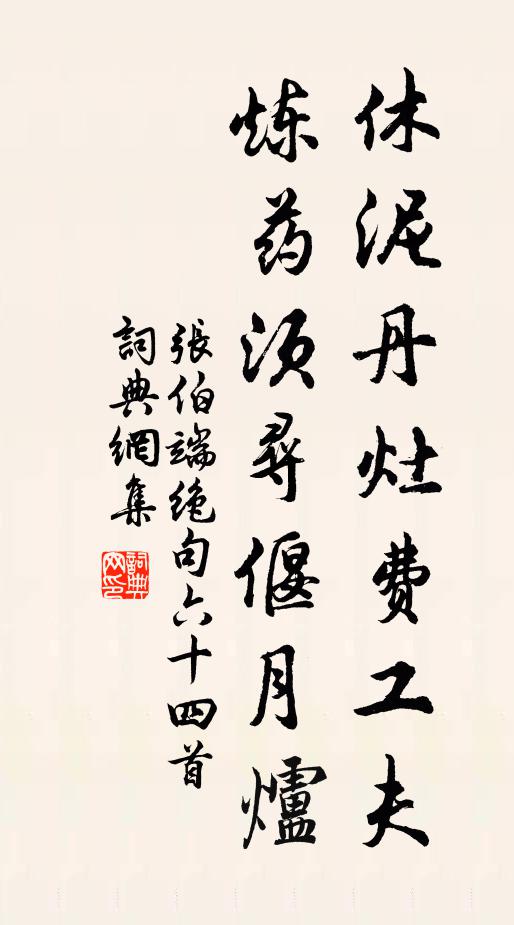 休泥丹灶费工夫
炼药须寻偃月爐
張伯端绝句六十四首
詞典網集
詞典
网印